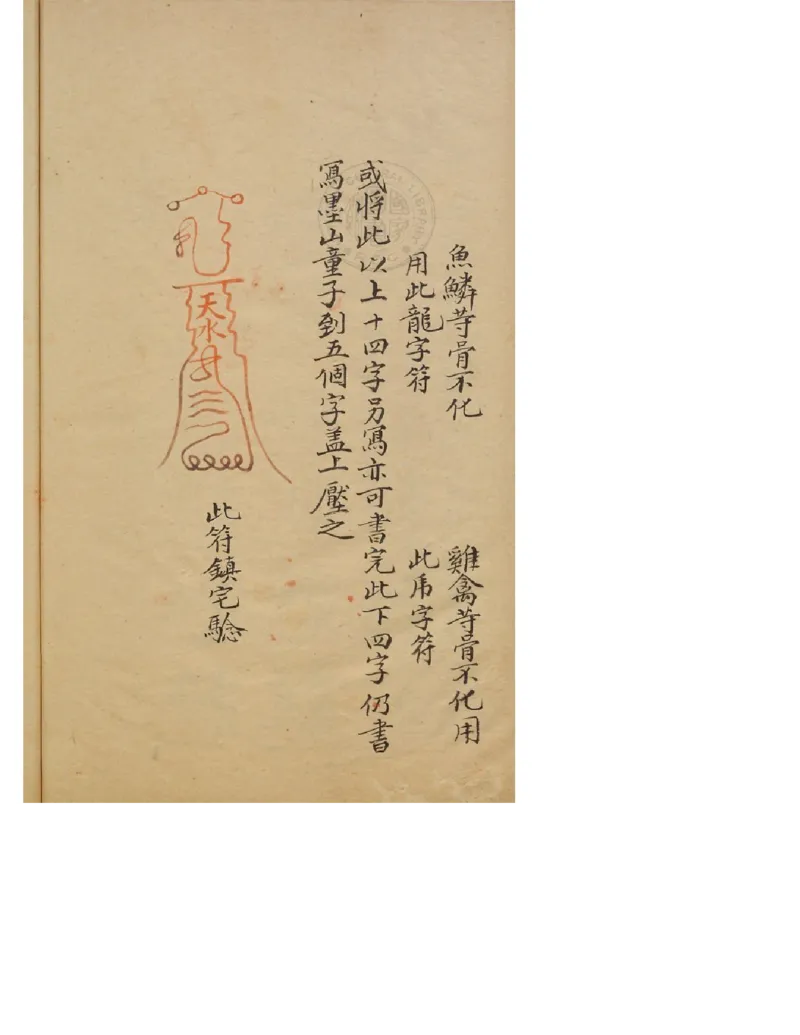 魚鱗等骨不化
用此龍字符
雞禽等骨不化用
此虎字符
或將此以上十四字另寫亦可書完此下四字仍書
寫墨山童子到五個字盖上壓之
天水
此符鎮宅驗